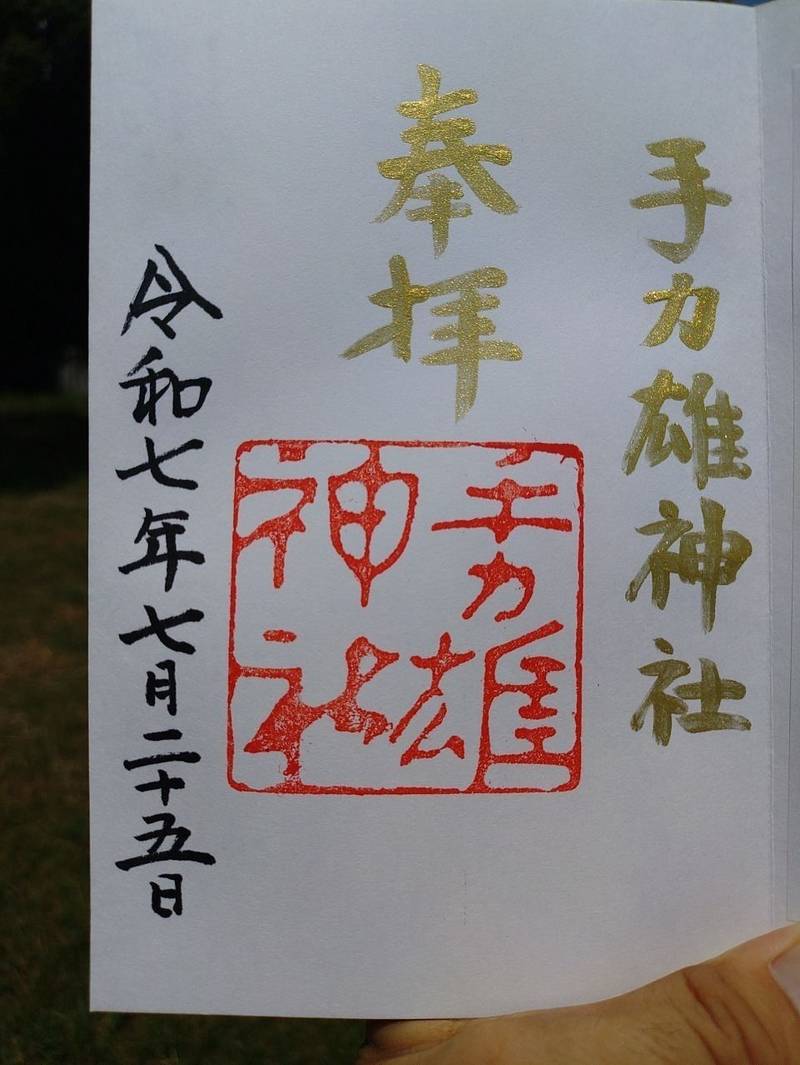 手力雄神社
奉拝
手力雄
神社
令和七年七月二十五日